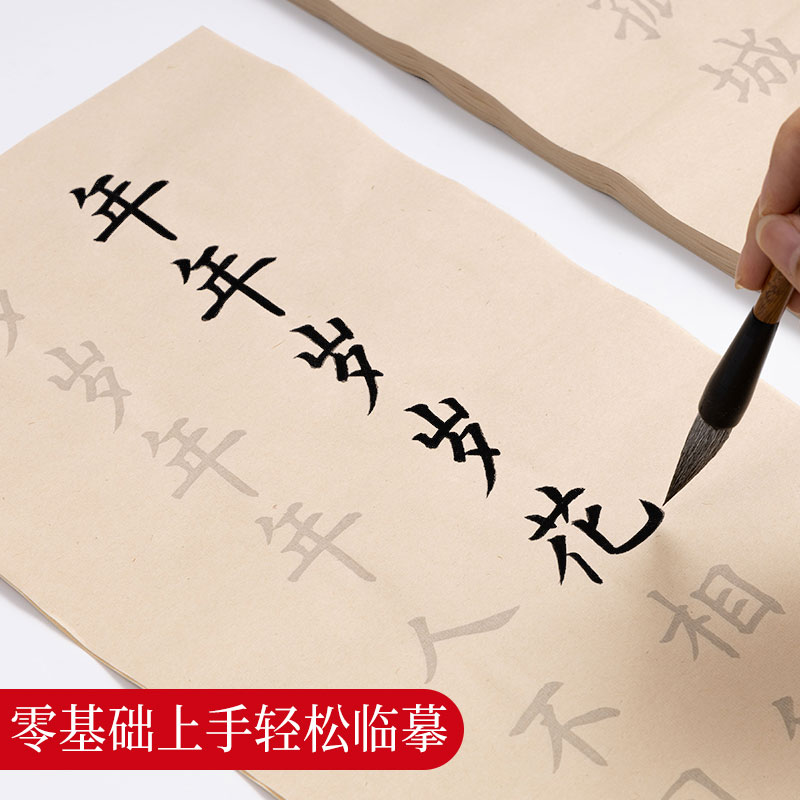 城
年年岁岁花相
岁年年人不
零基础上手轻松临摹